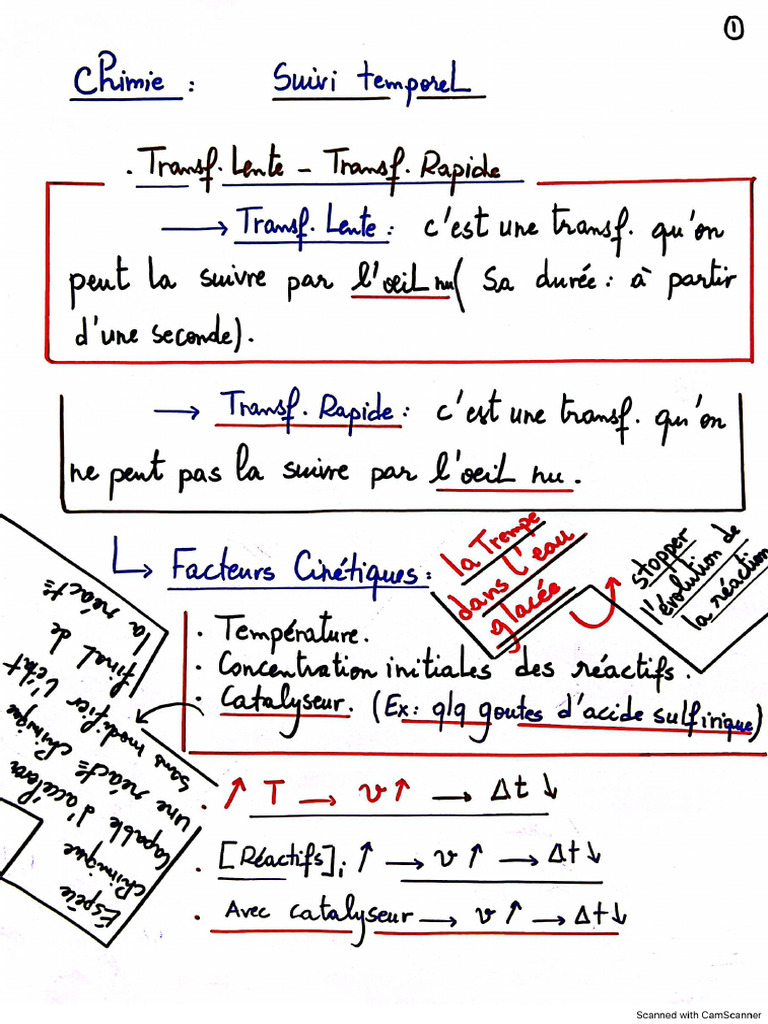 ①
Chimie : Suivi temporel
. Transf. Lente - Transf. Rapide
→ Transf. Lente : c'est une transf. qu'on
peut la suivre par l'oeil nu ( Sa durée : à partir
d'une seconde).
→ Transf. Rapide : c'est une transf. qu'on
ne peut pas la suivre par l'oeil nu.
↳ Facteurs Cinétiques :
la Trempe
dans l'eau
glacée
stopper
l'évolution de
la réaction
. Température.
. Concentration initiales des réactifs.
. Catalyseur. (Ex : q/q goutes d'acide sulfirique)
Espèce
chimique
capable d'accélérer
une réact° chimique
sans modifier l'état
final de
la réact°
. ↑ T → v ↑ → Δt ↓
. [Réactifs]i ↑ → v ↑ → Δt ↓
. Avec catalyseur → v ↑ → Δt ↓
Scanned with CamScanner